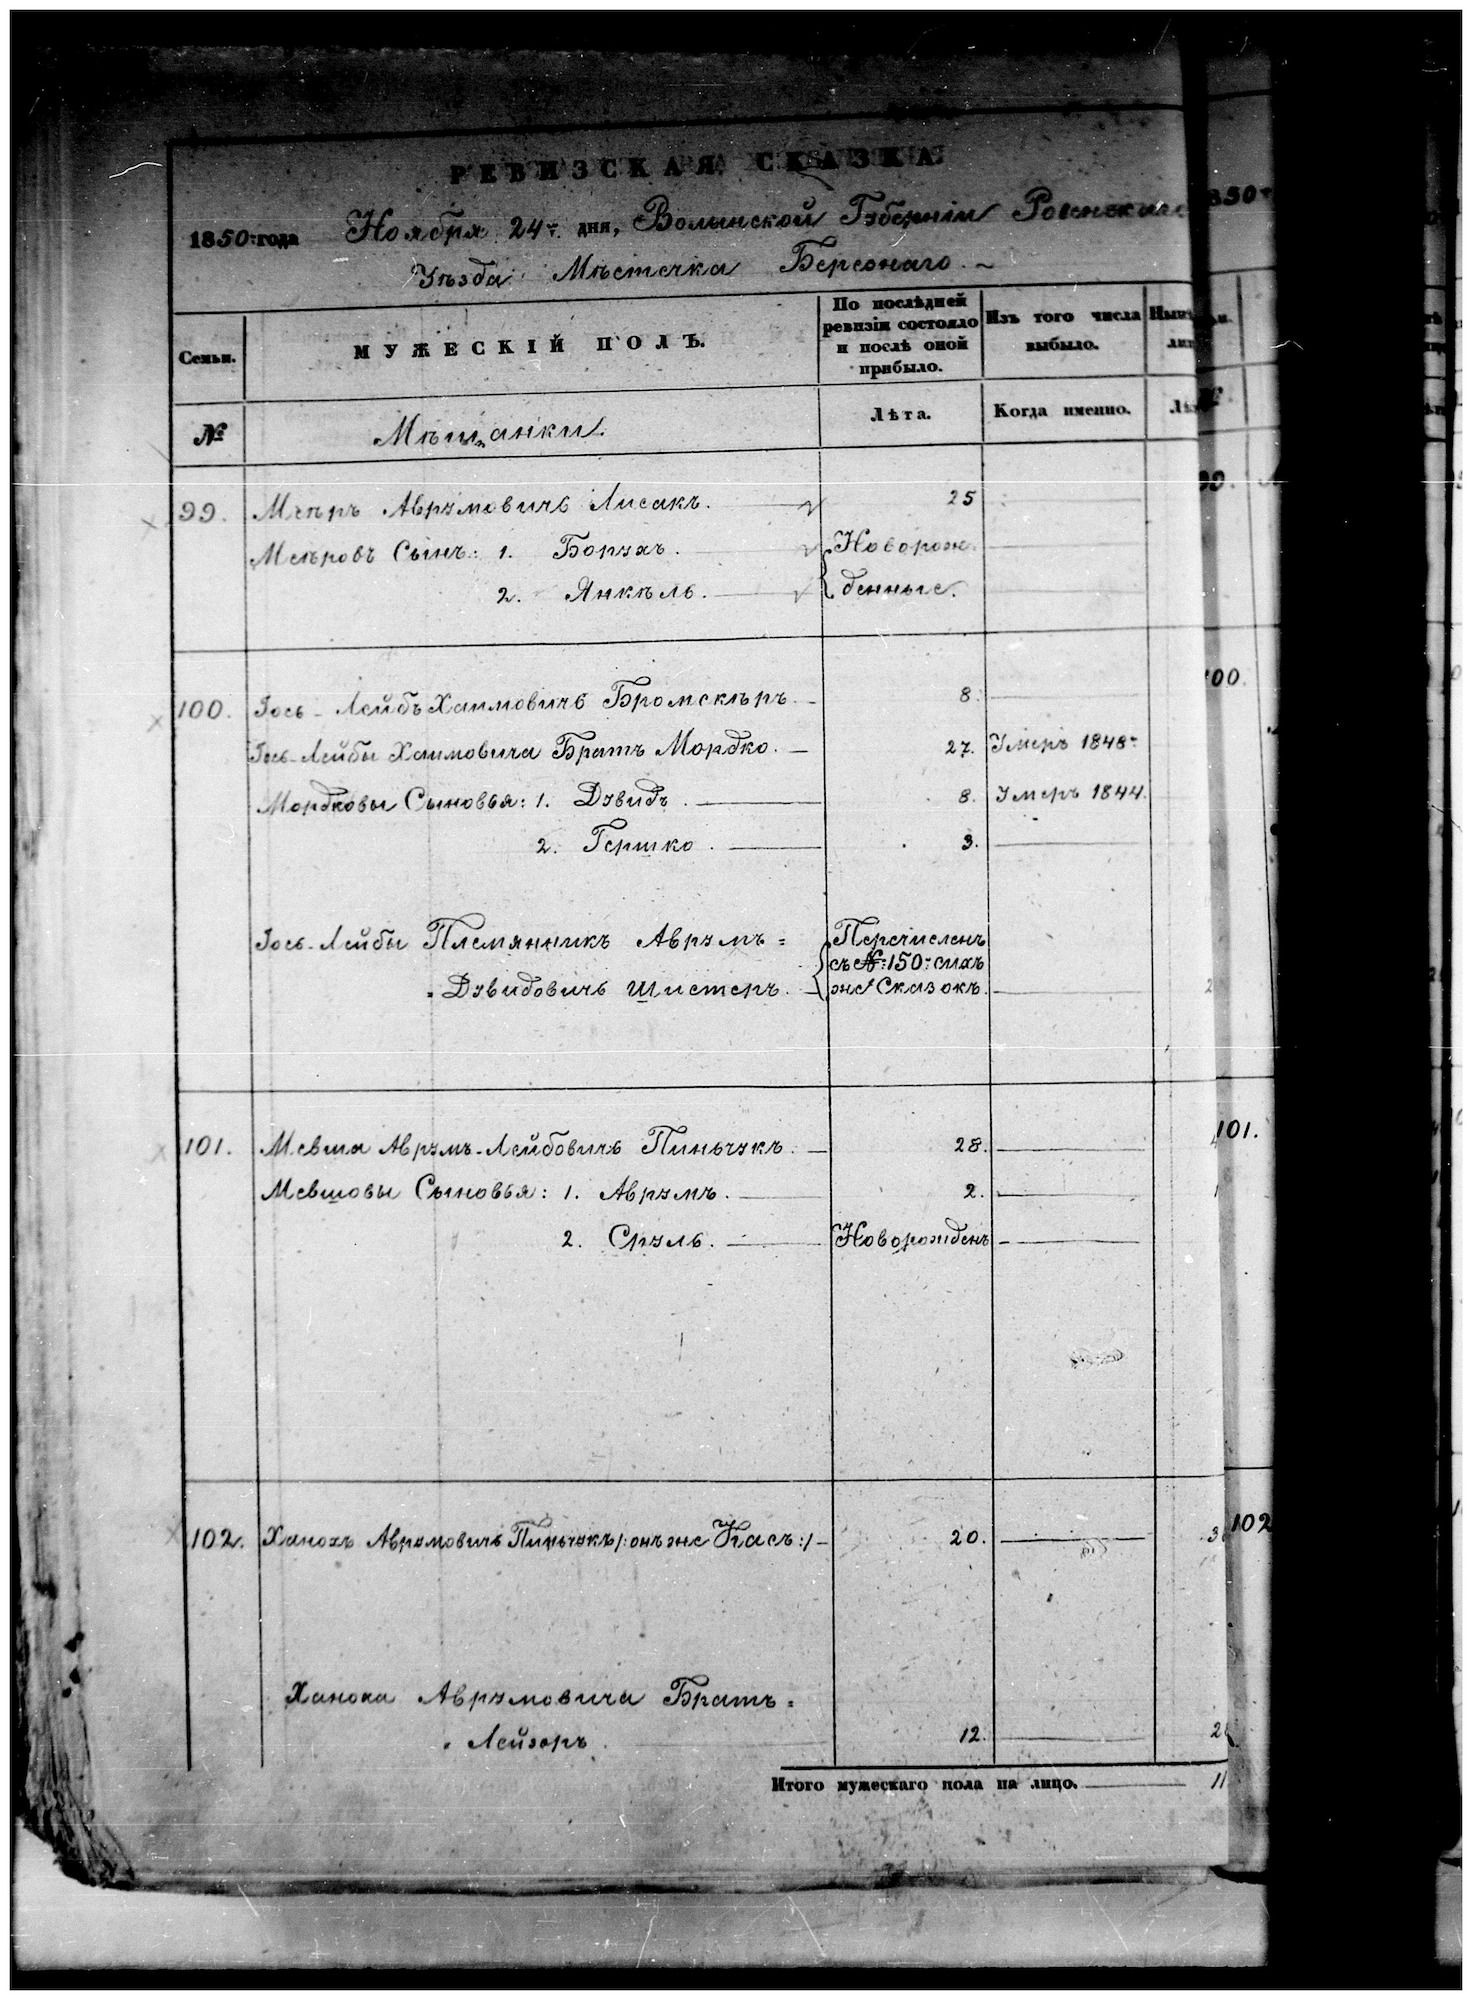 РЕВИЗСКАЯ СКАЗКА
1850 года Ноября 24 дня, Волынской Губерніи Ровенскаго
Уѣзда Мѣстечка Березнаго
Семьи.
МУЖЕСКІЙ ПОЛЪ.
По послѣдней ревизіи состояло и послѣ оной прибыло.
Изъ того числа выбыло.
№
Мѣщанки
Лѣта.
Когда именно.
99. Меѣръ Аврумовичъ Лисакъ. 25
Меѣровъ Сынъ: 1. Борухъ. Новорож-
2. Янкель. денные.
100. Іось-Лейбъ Хаимовичъ Бромскеръ. 8.
Іось-Лейбы Хаимовича Братъ Мордко. 27. Умеръ 1848
Мордковы Сыновья: 1. Дувидъ. 8. Умеръ 1844.
2. Гершко. 3.
Іось-Лейбы Племянникъ Аврумъ= Перечисленъ
съ №:150: сихъ
Дувидовичъ Шистеръ. же Сказокъ.
101. Мевша Аврумъ-Лейбовичъ Пиньчукъ. 28.
Мевшовы Сыновья: 1. Аврумъ. 2.
2. Сруль. Новорожденъ
102. Ханохъ Аврумовичъ Пиньчукъ /:онъ же Касъ:/ 20.
Ханоха Аврумовича Братъ=
Лейзоръ. 12.
Итого мужескаго пола на лицо. 11
850
100.
101.
102